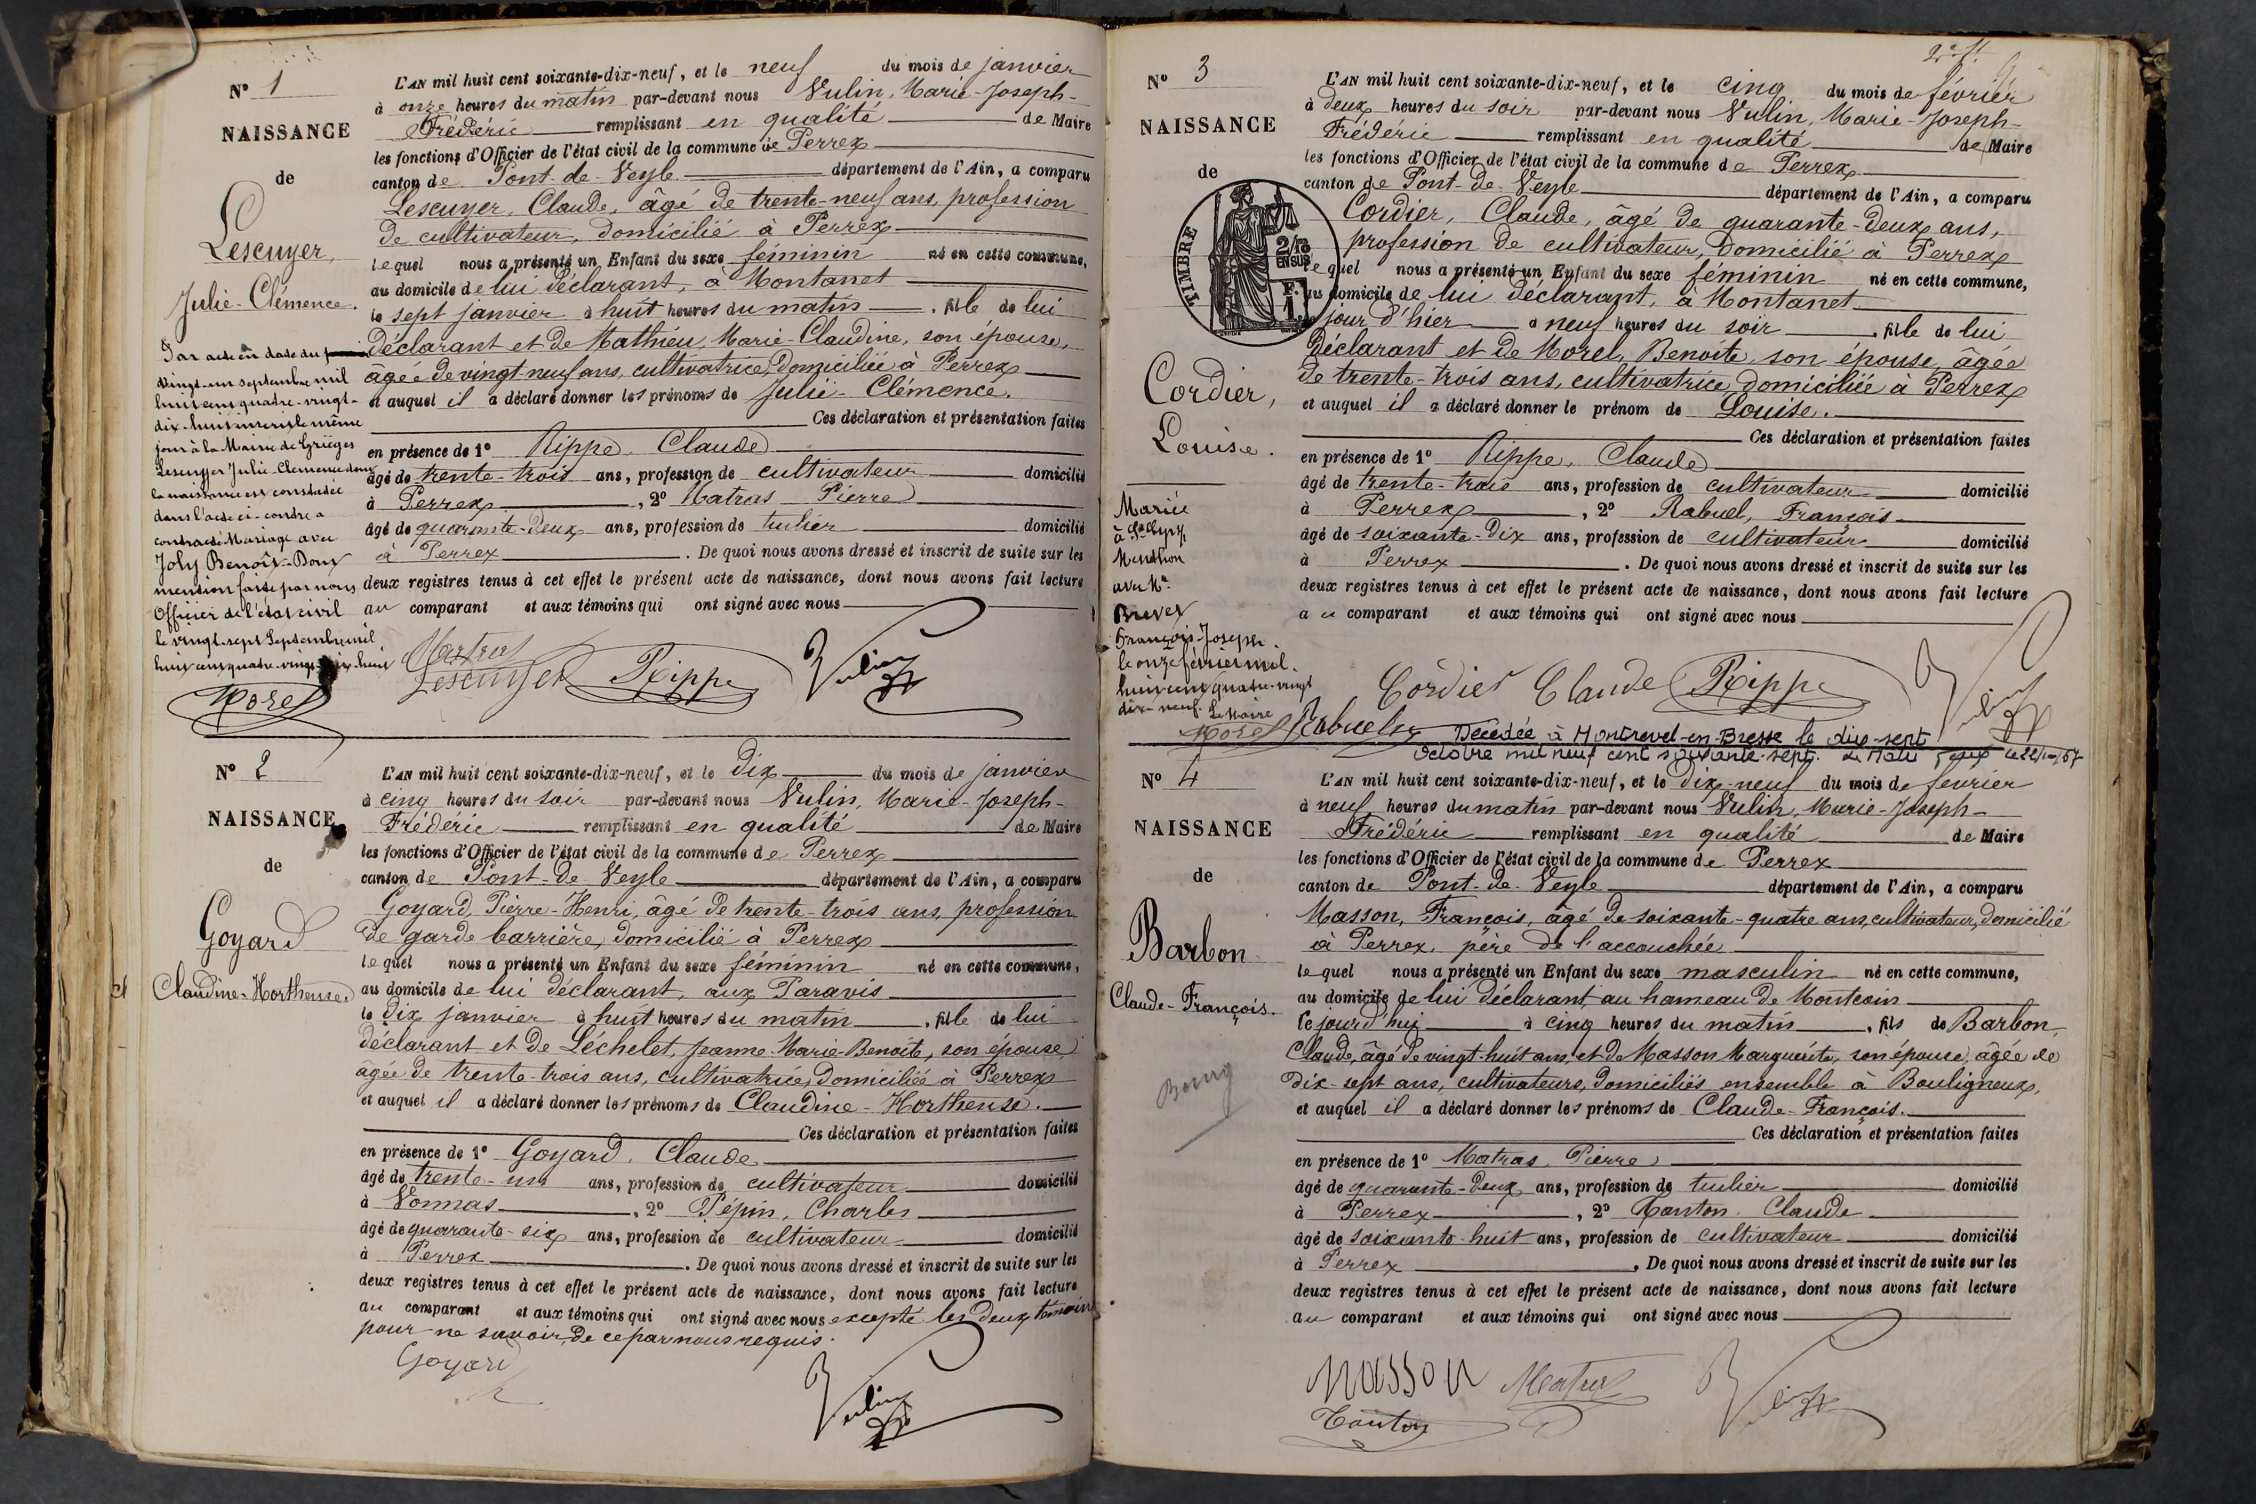 N° 1
NAISSANCE
de
Lescuyer,
Julie-Clémence.
Par acte en date du
vingt-un septembre mil
huit cent quatre-vingt-
dix-huit inscrit le même
jour à la Mairie de Grièges
Lescuyer Julie-Clémence dont
la naissance est constatée
dans l'acte ci-contre a
contracté Mariage avec
Joly Benoît-Bony
mention faite par nous
Officier de l'état civil
le vingt-sept Septembre mil
huit cent quatre-vingt-dix-huit
Morel
L'AN mil huit cent soixante-dix-neuf, et le neuf du mois de janvier
à onze heures du matin par-devant nous Vulin, Marie-Joseph-
Frédéric remplissant en qualité de Maire
les fonctions d'Officier de l'état civil de la commune de Perrex
canton de Pont-de-Veyle département de l'Ain, a comparu
Lescuyer, Claude, âgé de trente-neuf ans, profession
de cultivateur, domicilié à Perrex
lequel nous a présenté un Enfant du sexe féminin né en cette commune,
au domicile de lui déclarant, à Montanet
le sept janvier à huit heures du matin, fille de lui
déclarant et de Mathieu, Marie-Claudine, son épouse,
âgée de vingt-neuf ans, cultivatrice, domiciliée à Perrex
et auquel il a déclaré donner les prénoms de Julie-Clémence.
Ces déclaration et présentation faites
en présence de 1° Rippe, Claude
âgé de trente-trois ans, profession de cultivateur domicilié
à Perrex, 2° Matras Pierre
âgé de quarante-deux ans, profession de tuilier domicilié
à Perrex. De quoi nous avons dressé et inscrit de suite sur les
deux registres tenus à cet effet le présent acte de naissance, dont nous avons fait lecture
au comparant et aux témoins qui ont signé avec nous
Matras
Lescuyer Rippe Vulin
N° 2
NAISSANCE
de
Goyard
Claudine-Horthense.
L'AN mil huit cent soixante-dix-neuf, et le dix du mois de janvier
à cinq heures du soir par-devant nous Vulin, Marie-Joseph-
Frédéric remplissant en qualité de Maire
les fonctions d'Officier de l'état civil de la commune de Perrex
canton de Pont-de-Veyle département de l'Ain, a comparu
Goyard, Pierre-Henri, âgé de trente-trois ans, profession
de garde barrière, domicilié à Perrex
lequel nous a présenté un Enfant du sexe féminin né en cette commune,
au domicile de lui déclarant, aux Paravis
le dix janvier à huit heures du matin, fille de lui
déclarant et de Léchelet, Jeanne-Marie-Benoîte, son épouse,
âgée de trente-trois ans, cultivatrice, domiciliée à Perrex
et auquel il a déclaré donner les prénoms de Claudine-Horthense.
Ces déclaration et présentation faites
en présence de 1° Goyard, Claude
âgé de trente-un ans, profession de cultivateur domicilié
à Vonnas, 2° Pépin, Charles
âgé de quarante-six ans, profession de cultivateur domicilié
à Perrex. De quoi nous avons dressé et inscrit de suite sur les
deux registres tenus à cet effet le présent acte de naissance, dont nous avons fait lecture
au comparant et aux témoins qui ont signé avec nous excepté les deux témoins
pour ne savoir, de ce par nous requis.
Goyard Vulin
N° 3
NAISSANCE
de
TIMBRE
2/10
EN SUS
F.
1
Cordier,
Louise.
Marié
à
avec Mr
Brevet
François-Joseph.
le onze février mil.
huit cent quatre-vingt
dix-neuf. Le Maire
Morel
L'AN mil huit cent soixante-dix-neuf, et le cinq du mois de février
à deux heures du soir par-devant nous Vulin, Marie-Joseph-
Frédéric remplissant en qualité de Maire
les fonctions d'Officier de l'état civil de la commune de Perrex
canton de Pont-de-Veyle département de l'Ain, a comparu
Cordier, Claude, âgé de quarante-deux ans,
profession de cultivateur, domicilié à Perrex
lequel nous a présenté un Enfant du sexe féminin né en cette commune,
au domicile de lui déclarant, à Montanet
jour d'hier à neuf heures du soir, fille de lui
déclarant et de Morel, Benoîte, son épouse, âgée
de trente-trois ans, cultivatrice, domiciliée à Perrex
et auquel il a déclaré donner le prénom de Louise.
Ces déclaration et présentation faites
en présence de 1° Rippe, Claude
âgé de trente-trois ans, profession de cultivateur domicilié
à Perrex, 2° Rabuel, François
âgé de soixante-dix ans, profession de cultivateur domicilié
à Perrex. De quoi nous avons dressé et inscrit de suite sur les
deux registres tenus à cet effet le présent acte de naissance, dont nous avons fait lecture
au comparant et aux témoins qui ont signé avec nous
Cordier Claude Rippe Vulin
Rabuel
Décédée à Montrevel-en-Bresse le dix-sept
octobre mil neuf cent soixante-sept.
N° 4
NAISSANCE
de
Barbon
Claude-François.
Bourg
L'AN mil huit cent soixante-dix-neuf, et le dix-neuf du mois de février
à neuf heures du matin par-devant nous Vulin, Marie-Joseph-
Frédéric remplissant en qualité de Maire
les fonctions d'Officier de l'état civil de la commune de Perrex
canton de Pont-de-Veyle département de l'Ain, a comparu
Masson, François, âgé de soixante-quatre ans, cultivateur, domicilié
à Perrex, père de l'accouchée
lequel nous a présenté un Enfant du sexe masculin né en cette commune,
au domicile de lui déclarant au hameau de Montcoin
ce jourd'hui à cinq heures du matin, fils de Barbon,
Claude, âgé de vingt-huit ans, et de Masson Marguerite, son épouse, âgée de
dix-sept ans, cultivateurs, domiciliés ensemble à Bouligneux,
et auquel il a déclaré donner les prénoms de Claude-François.
Ces déclaration et présentation faites
en présence de 1° Matras, Pierre
âgé de quarante-deux ans, profession de tuilier domicilié
à Perrex, 2° Tonton, Claude
âgé de soixante-huit ans, profession de cultivateur domicilié
à Perrex. De quoi nous avons dressé et inscrit de suite sur les
deux registres tenus à cet effet le présent acte de naissance, dont nous avons fait lecture
au comparant et aux témoins qui ont signé avec nous
Masson Matras Vulin
Tonton